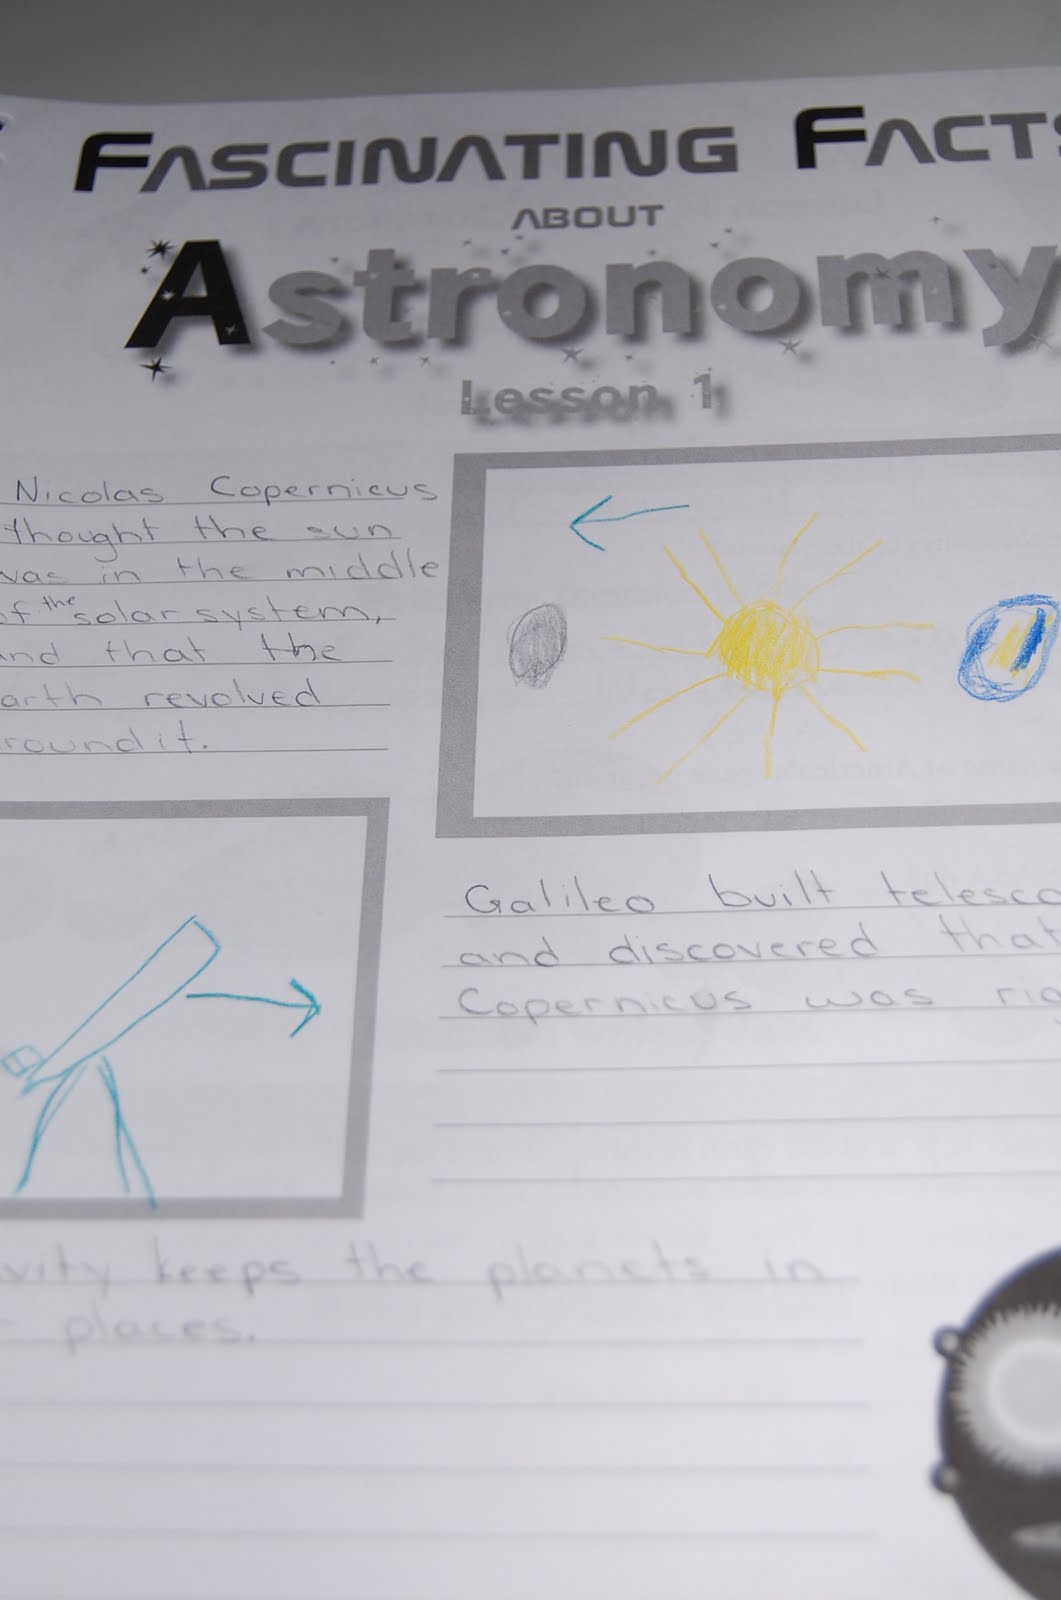 FASCINATING FACTS
ABOUT
Astronomy
Lesson 1
Nicolas Copernicus
thought the sun
was in the middle
of the solar system,
and that the
arth revolved
round it.
Galileo built telesco
and discovered that
Copernicus was rig
vity keeps the planets in
r places.